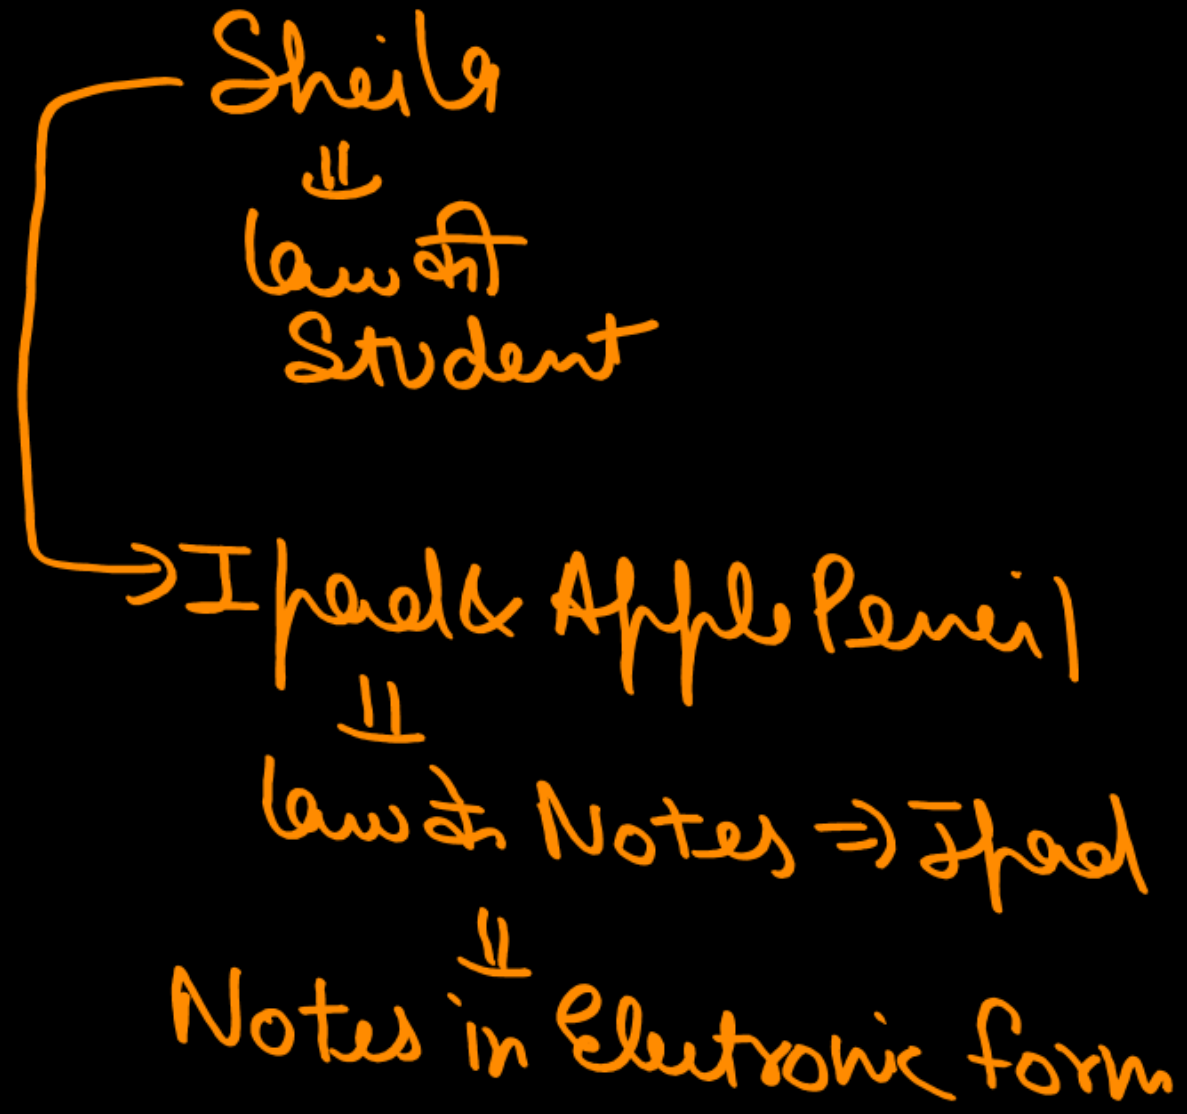 Sheila
⇓
Law की
Student
→ Ipad & Apple Pencil
⇓
Law के Notes ⇒ Ipad
⇓
Notes in Electronic form